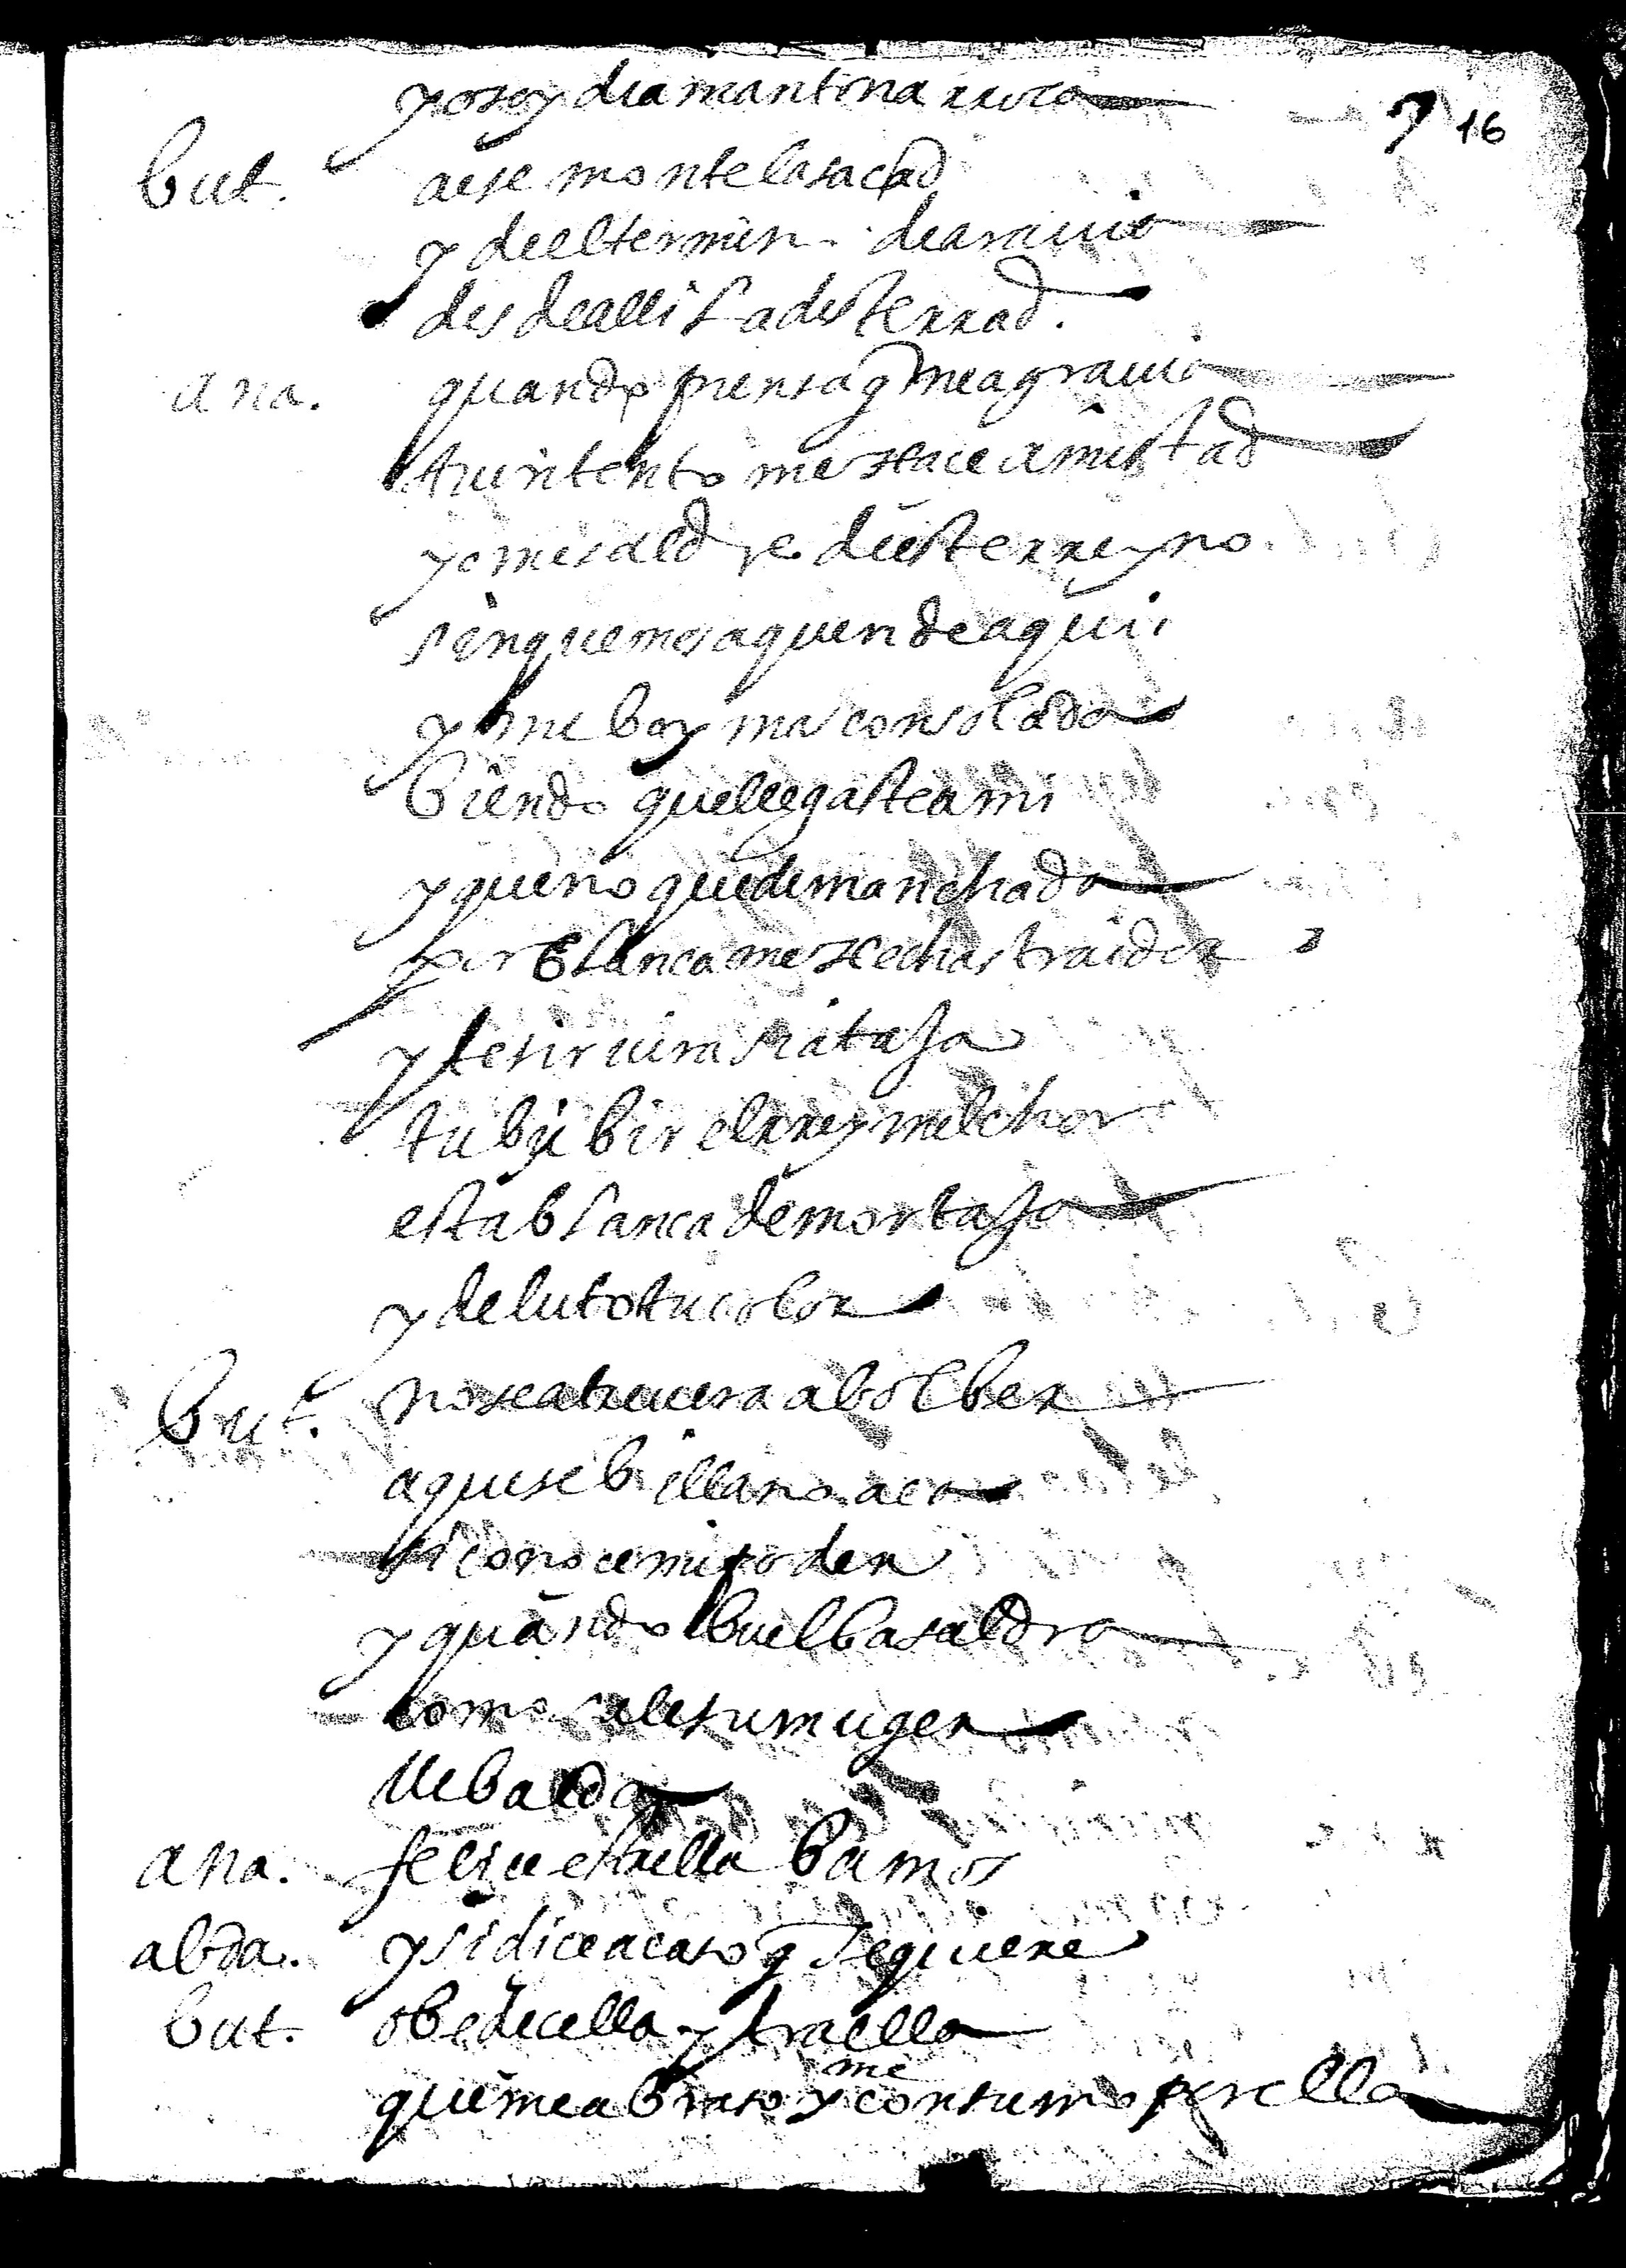 7 16
yo soy diamantina rroca
but. a ese monte la sacad
y de el termin. de arauio
desde alli la desterrad.
ana. quando piensa q me agrauia
tu intento me hace amistad
yo me saldre destierreyno
sin que me saquen de aqui
y me boy mas consolada
biendo que llegaste a mi
y que no quede manchada
por blanca me hechas traidor
y seruira
tu el rrey melchor
esta blanca de mortaja
y de luto tu color
but. no se atreuera a bolber
aquese billano aca
si conoce mi poder
y quando buelba saldra
como sale su muger
llebalda
ana. felice estrella bamos
abda. y si dice acaso q te quiere
but. obedecella y traella
que me abraso y me consumo por ella